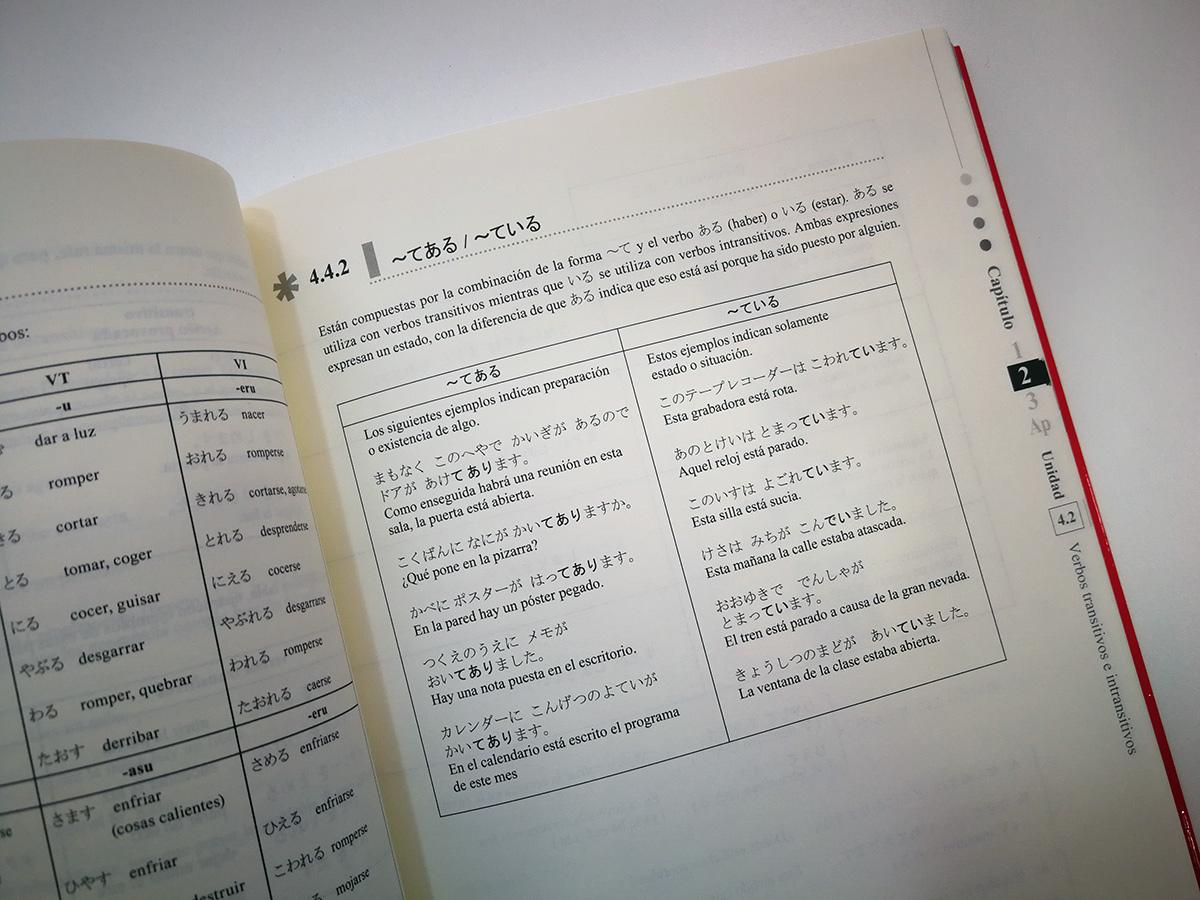 bos:
VT
VI
-u
-eru
dar a luz
うまれる nacer
romper
おれる romperse
cortar
きれる cortarse, agotarse
とる tomar, coger
とれる desprenderse
にる cocer, guisar
にえる cocerse
やぶる desgarrar
やぶれる desgarrarse
わる romper, quebrar
われる romperse
たおす derribar
たおれる caerse
-asu
-eru
さます enfriar
(cosas calientes)
さめる enfriarse
ひやす enfriar
ひえる enfriarse
こわれる romperse
mojarse
* 4.4.2 〜てある / 〜ている
Están compuestas por la combinación de la forma 〜て y el verbo ある (haber) o いる (estar). ある se
utiliza con verbos transitivos mientras que いる se utiliza con verbos intransitivos. Ambas expresiones
expresan un estado, con la diferencia de que ある indica que eso está así porque ha sido puesto por alguien.
〜てある
Los siguientes ejemplos indican preparación
o existencia de algo.
まもなく このへやで かいぎが あるので
ドアが あけてあります。
Como enseguida habrá una reunión en esta
sala, la puerta está abierta.
こくばんに なにが かいてありますか。
¿Qué pone en la pizarra?
かべに ポスターが はってあります。
En la pared hay un póster pegado.
つくえのうえに メモが
おいてありました。
Hay una nota puesta en el escritorio.
カレンダーに こんげつのよていが
かいてあります。
En el calendario está escrito el programa
de este mes
〜ている
Estos ejemplos indican solamente
estado o situación.
このテープレコーダーは こわれています。
Esta grabadora está rota.
あのとけいは とまっています。
Aquel reloj está parado.
このいすは よごれています。
Esta silla está sucia.
けさは みちが こんでいました。
Esta mañana la calle estaba atascada.
おおゆきで でんしゃが
とまっています。
El tren está parado a causa de la gran nevada.
きょうしつのまどが あいていました。
La ventana de la clase estaba abierta.
Capítulo
1
2
3
Ap
Unidad
4.2
Verbos transitivos e intransitivos